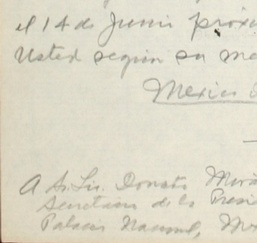 el 14 de Junio próxi
Usted según su ma
Mexico
A Sr. Lic. Donato Mira
Secretario de la Presi
Palacio Nacional, Mex